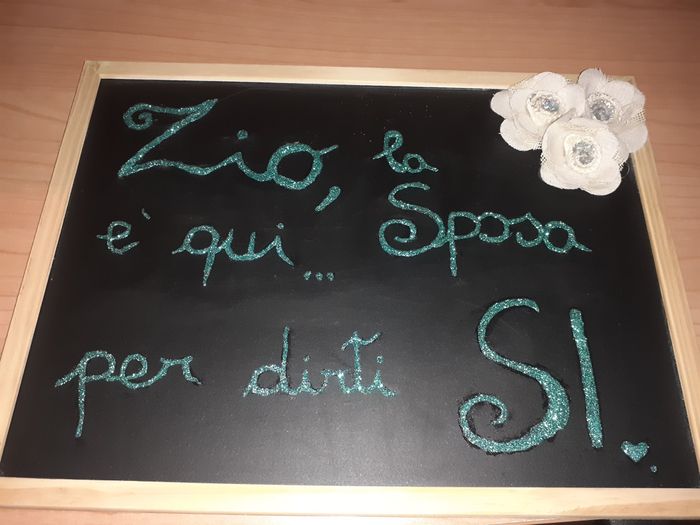 Zio, la Sposa
e' qui...
per dirti SI.